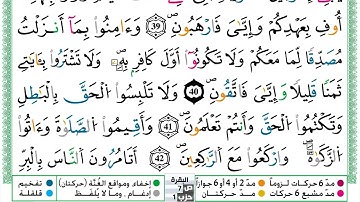 أُوفِ بِعَهْدِكُمْ وَإِيَّٰيَ فَٱرْهَبُونِ 39 وَءَامِنُوا۟ بِمَآ أَنزَلْتُ
مُصَدِّقًا لِّمَا مَعَكُمْ وَلَا تَكُونُوٓا۟ أَوَّلَ كَافِرٍۭ بِهِۦ وَلَا تَشْتَرُوا۟ بِـَٔايَٰتِي
ثَمَنًا قَلِيلًا وَإِيَّٰيَ فَٱتَّقُونِ 40 وَلَا تَلْبِسُوا۟ ٱلْحَقَّ بِٱلْبَٰطِلِ
وَتَكْتُمُوا۟ ٱلْحَقَّ وَأَنتُمْ تَعْلَمُونَ 41 وَأَقِيمُوا۟ ٱلصَّلَوٰةَ وَءَاتُوا۟
ٱلزَّكَوٰةَ وَٱرْكَعُوا۟ مَعَ ٱلرَّٰكِعِينَ 42 أَتَأْمُرُونَ ٱلنَّاسَ بِٱلْبِرِّ
مدّ 6 حركات لزوماً مدّ 2 أو 4 أو 6 جوازاً البقرة ص 7 حزب 1 إخفاء، ومواقع الغُنَّة (حركتان) تفخيم
مدّ مشبع 6 حركات مدّ حركتان إدغام، وما لا يُلفظ قلقلة